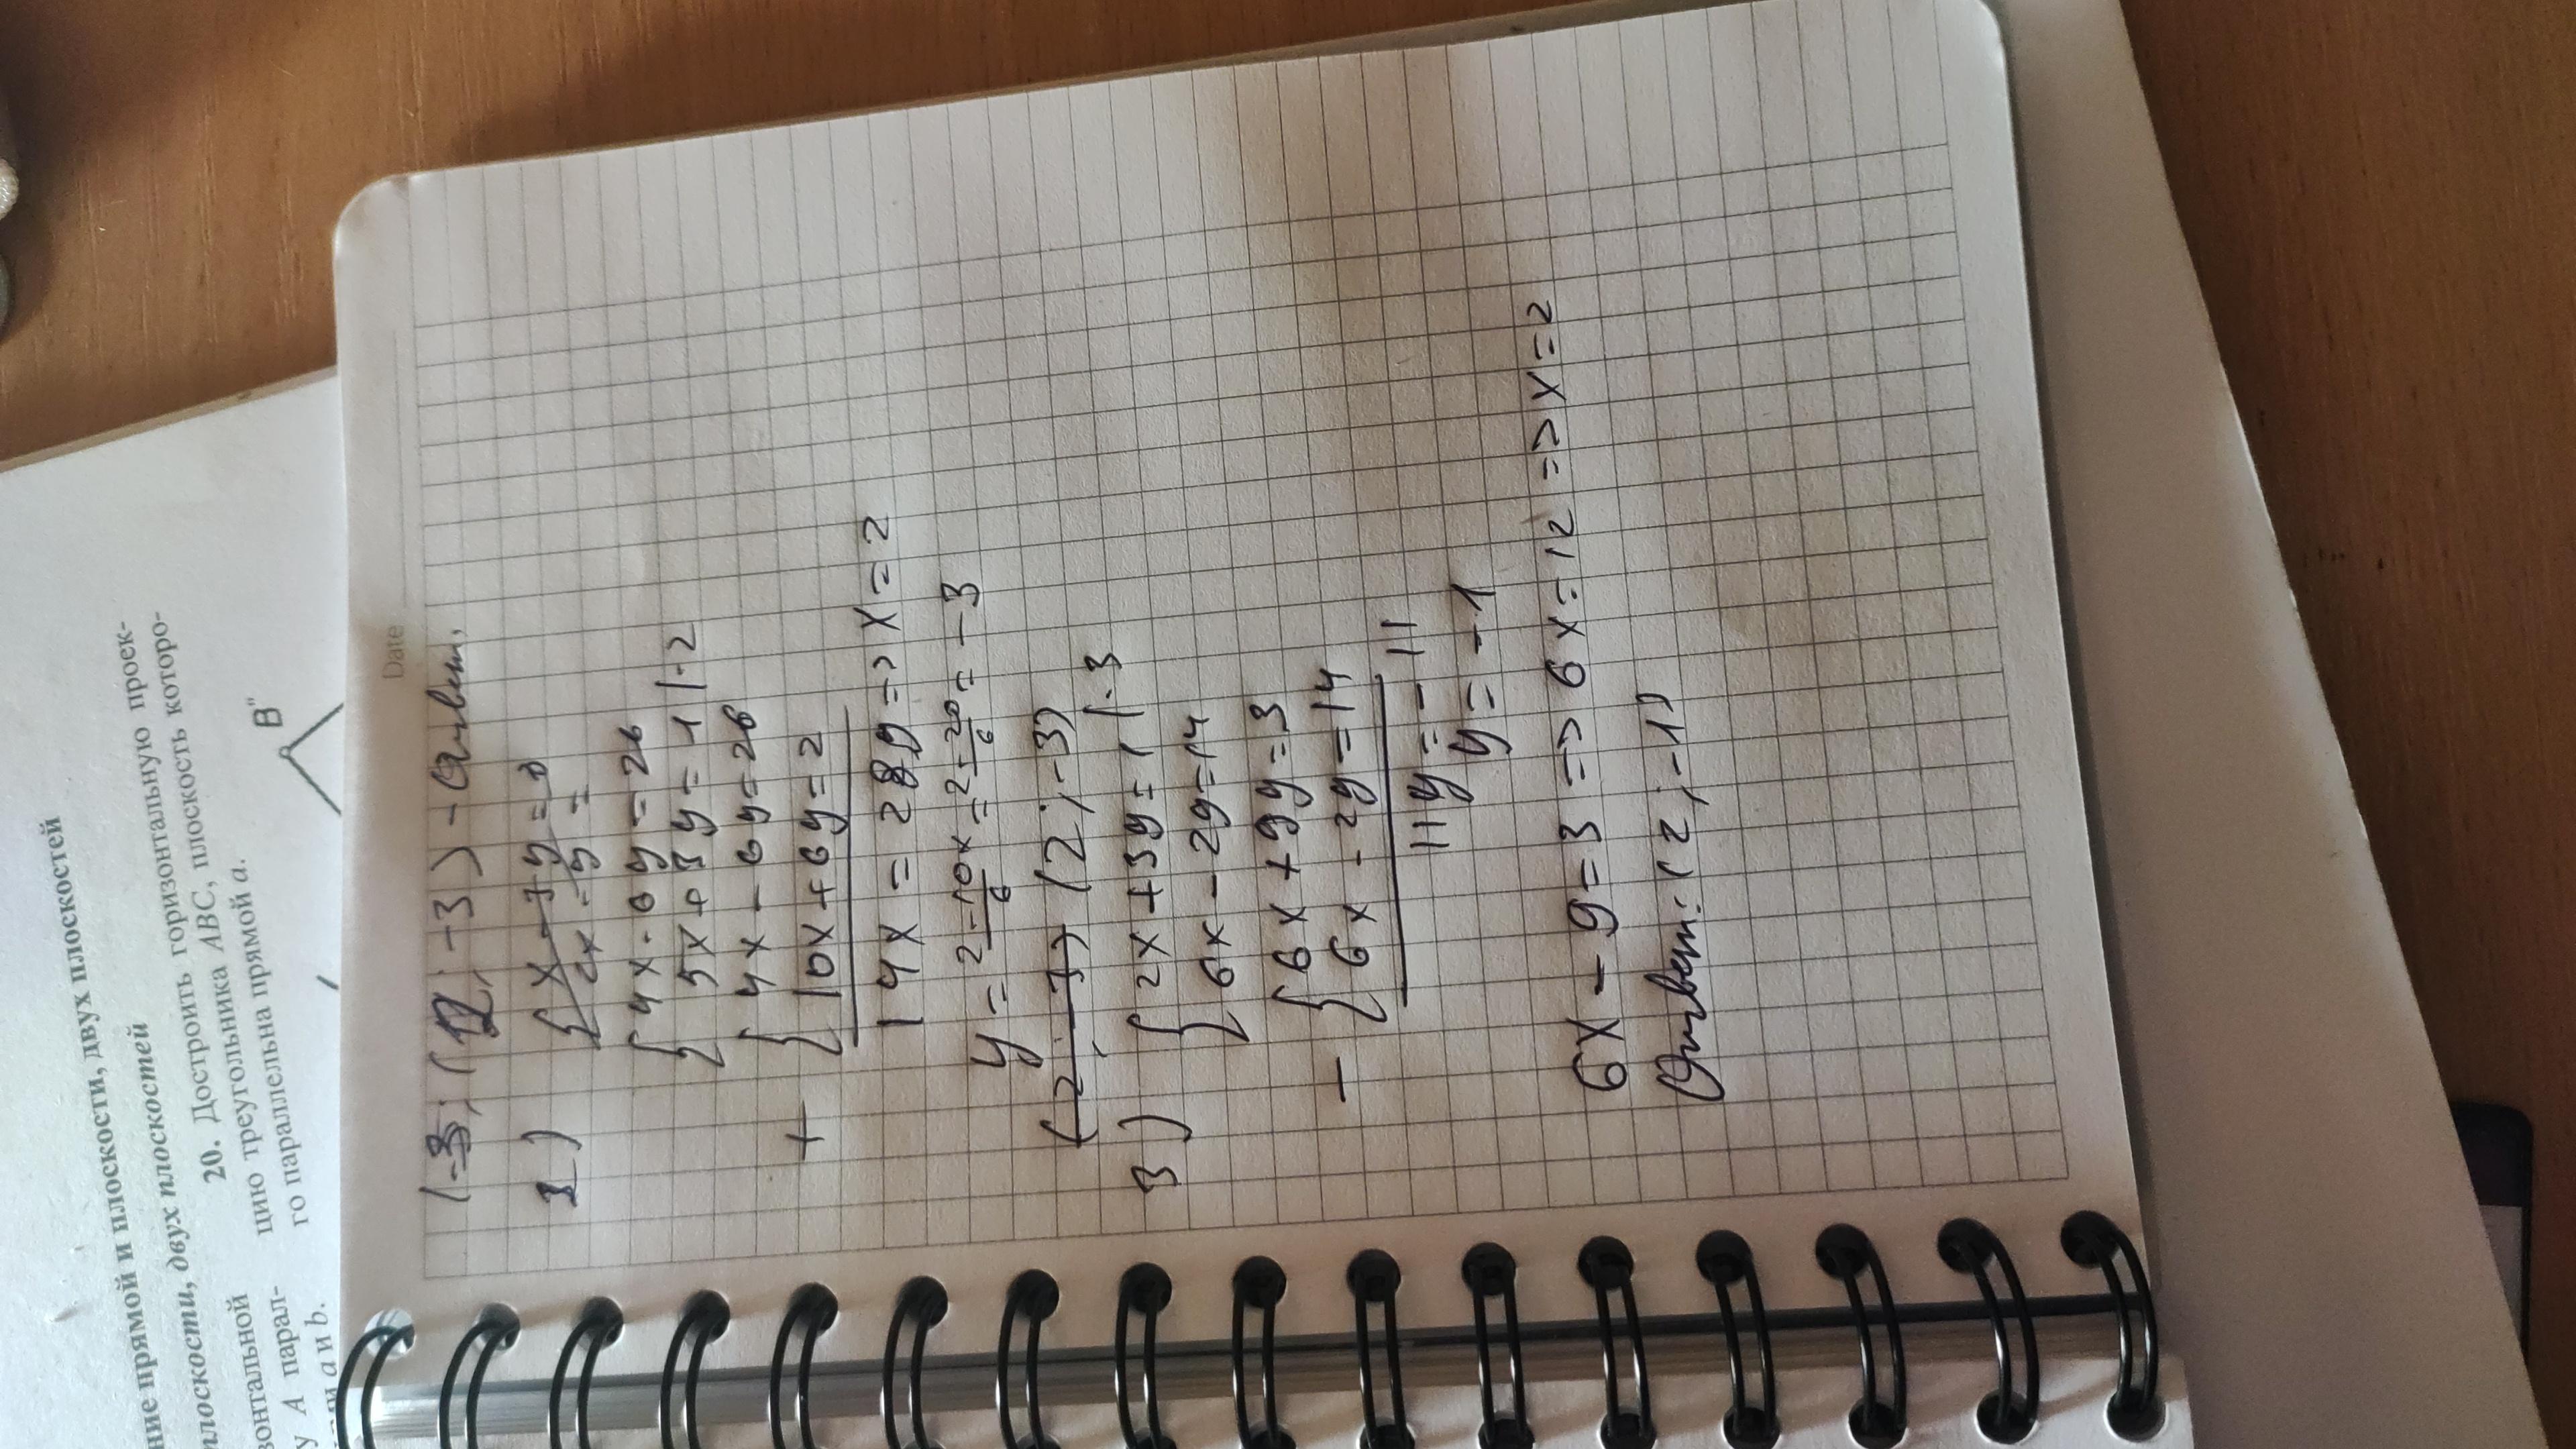 ние прямой и плоскости, двух плоскостей
плоскости, двух плоскостей
20. Достроить горизонтальную проек-
цию треугольника ABC, плоскость которо-
го параллельна прямой a.
B"
зонтальной
у A парал-
a и b.
Date
; -3) - Ответ.
{4x - 6y = 26
5x + 3y = 1 | · 2
{4x - 6y = 26
+ 10x + 6y = 2
14x = 28 => x = 2
y = \frac{2 - 10x}{6} = \frac{2 - 20}{6} = -3
(2 ; -3)
3) {2x + 3y = 1 | · 3
6x - 2y = 14
{6x + 9y = 3
- 6x - 2y = 14
11y = -11
y = -1
6x - 9 = 3 => 6x = 12 => x = 2
Ответ: (2 ; -1)